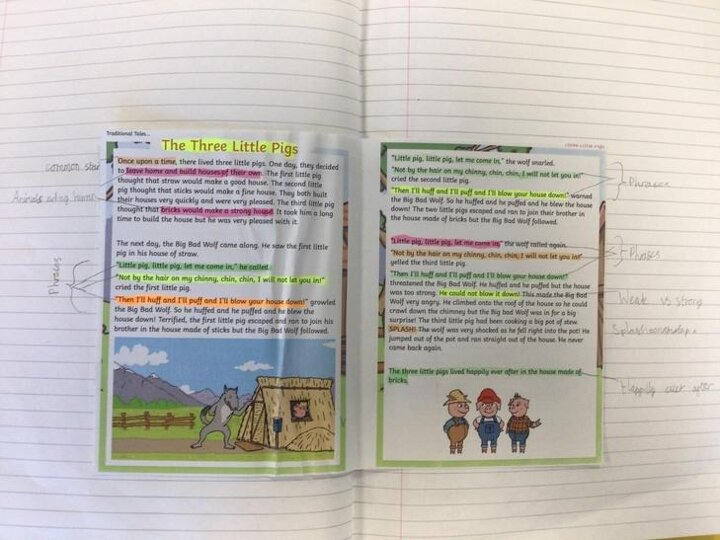 Traditional Tales...
The Three Little Pigs
Once upon a time, there lived three little pigs. One day, they decided
to leave home and build houses of their own. The first little pig
thought that straw would make a good house. The second little
pig thought that sticks would make a fine house. They both built
their houses very quickly and were very pleased. The third little pig
thought that bricks would make a strong house. It took him a long
time to build the house but he was very pleased with it.
The next day, the Big Bad Wolf came along. He saw the first little
pig in his house of straw.
"Little pig, little pig, let me come in," he called.
"Not by the hair on my chinny, chin, chin, I will not let you in!"
cried the first little pig.
"Then I'll huff and I'll puff and I'll blow your house down!" growled
the Big Bad Wolf. So he huffed and he puffed and he blew the
house down! Terrified, the first little pig escaped and ran to join his
brother in the house made of sticks but the Big Bad Wolf followed.
common
Animals acting human
Phrases
"Little pig, little pig, let me come in," the wolf snarled.
"Not by the hair on my chinny, chin, chin, I will not let you in!"
cried the second little pig.
"Then I'll huff and I'll puff and I'll blow your house down!" warned
the Big Bad Wolf. So he huffed and he puffed and he blew the house
down! The two little pigs escaped and ran to join their brother in
the house made of bricks but the Big Bad Wolf followed.
"Little pig, little pig, let me come in," the wolf called again.
"Not by the hair on my chinny, chin, chin, I will not let you in!"
yelled the third little pig.
"Then I'll huff and I'll puff and I'll blow your house down!"
threatened the Big Bad Wolf. He huffed and he puffed but the house
was too strong. He could not blow it down! This made the Big Bad
Wolf very angry. He climbed onto the roof of the house so he could
crawl down the chimney but the Big Bad Wolf was in for a big
surprise! The third little pig had been cooking a big pot of stew.
SPLASH! The wolf was very shocked as he fell right into the pot! He
jumped out of the pot and ran straight out of the house. He never
came back again.
The three little pigs lived happily ever after in the house made of
bricks.
Phrases
Phrases
Weak vs strong
Happily ever after